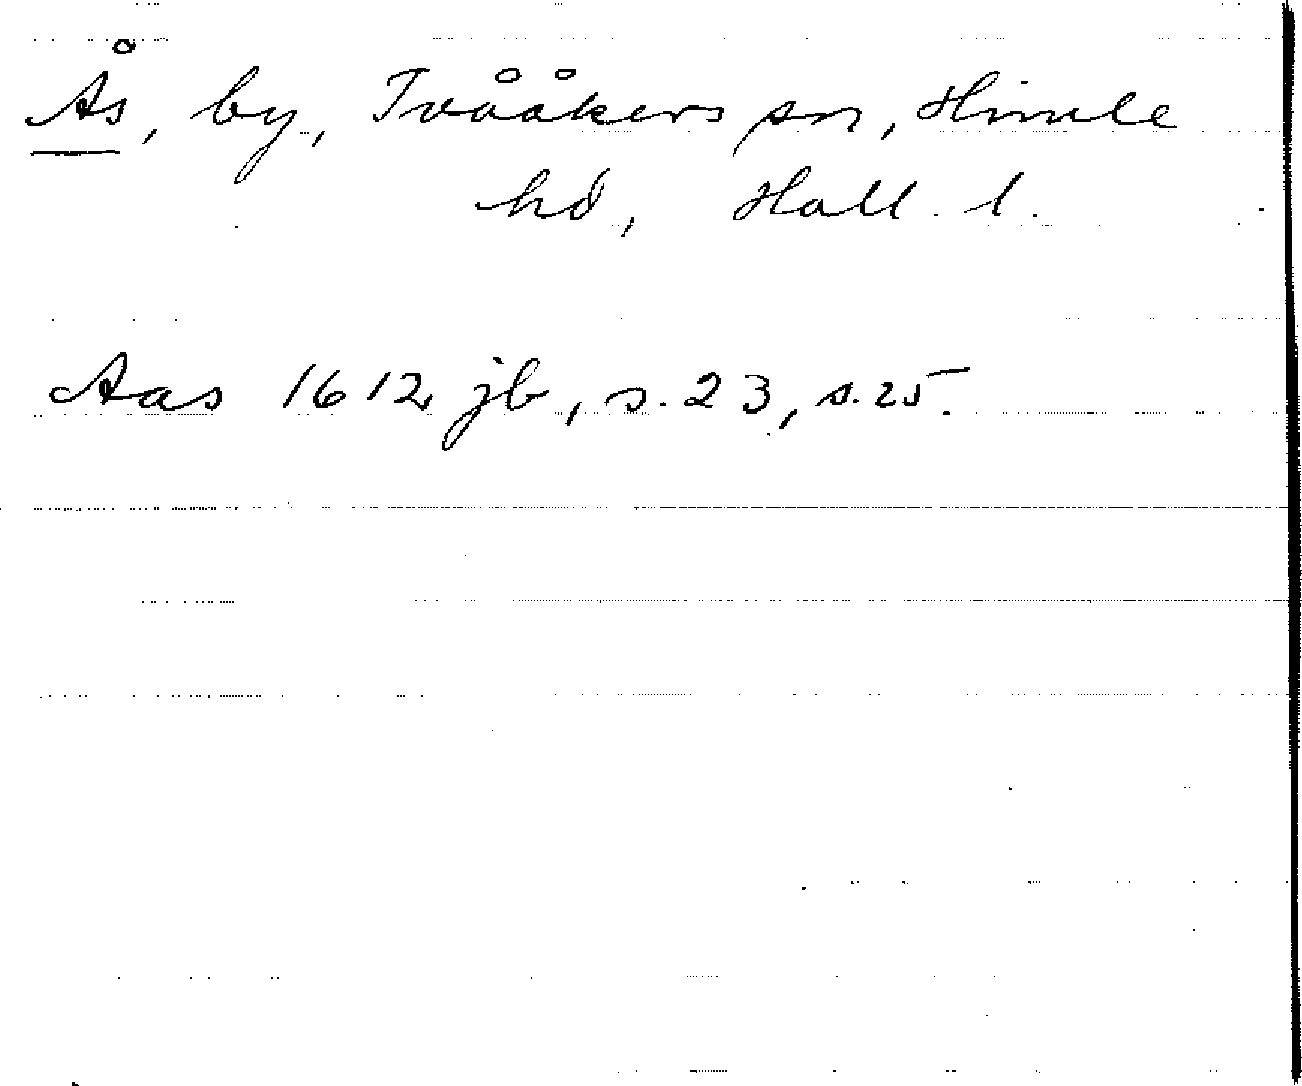 Ås, by, Tvååkers sn, Himle
hd, Hall. l.
Aas 1612 jb, s. 23, s. 25.